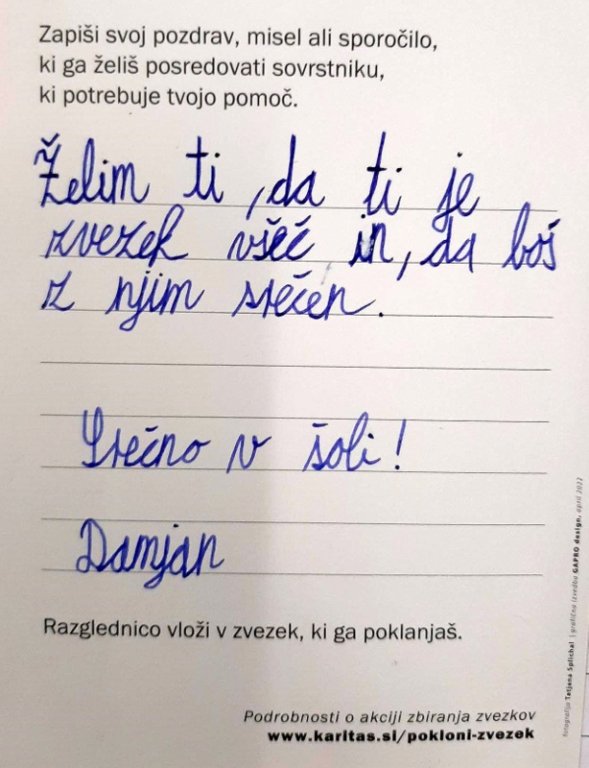 Zapiši svoj pozdrav, misel ali sporočilo,
ki ga želiš posredovati sovrstniku,
ki potrebuje tvojo pomoč.
Želim ti ,da ti je
zvezek všeč in, da boš
z njim srečen.
Srečno v šoli!
Damjan
Razglednico vloži v zvezek, ki ga poklanjaš.
Podrobnosti o akciji zbiranja zvezkov
www.karitas.si/pokloni-zvezek
fotografija Tatjana Splichal | grafična izvedba GAPRO design, april 2022